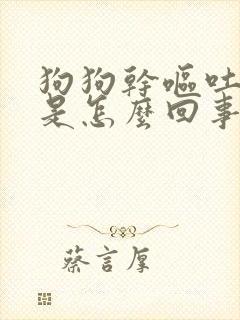 狗狗幹嘔吐
是怎麼回事
蔡言厚